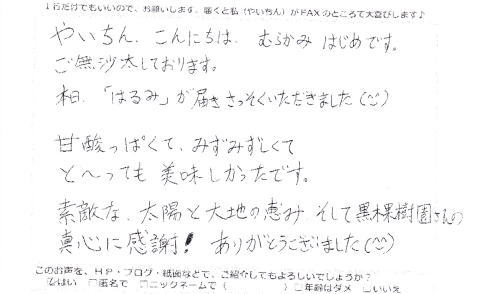 1行だけでもいいので、お願いします。届くと私(やいちん)がFAXのところで大喜びします♪
やいちん、こんにちは、むらかみ はじめです。
ご無沙太しております。
本日、「はるみ」が届きさっそくいただきました(^^)
甘酸っぱくて、みずみずしくて
と〜っても 美味しかったです。
素敵な、太陽と大地の恵み そして黒棵樹園さんの
真心に感謝! ありがとうございました(^^)
このお声を、HP・ブログ・紙面などで、ご紹介してもよろしいでしょうか?
□はい □匿名で □ニックネームで( ) □年齢はダメ □いいえ